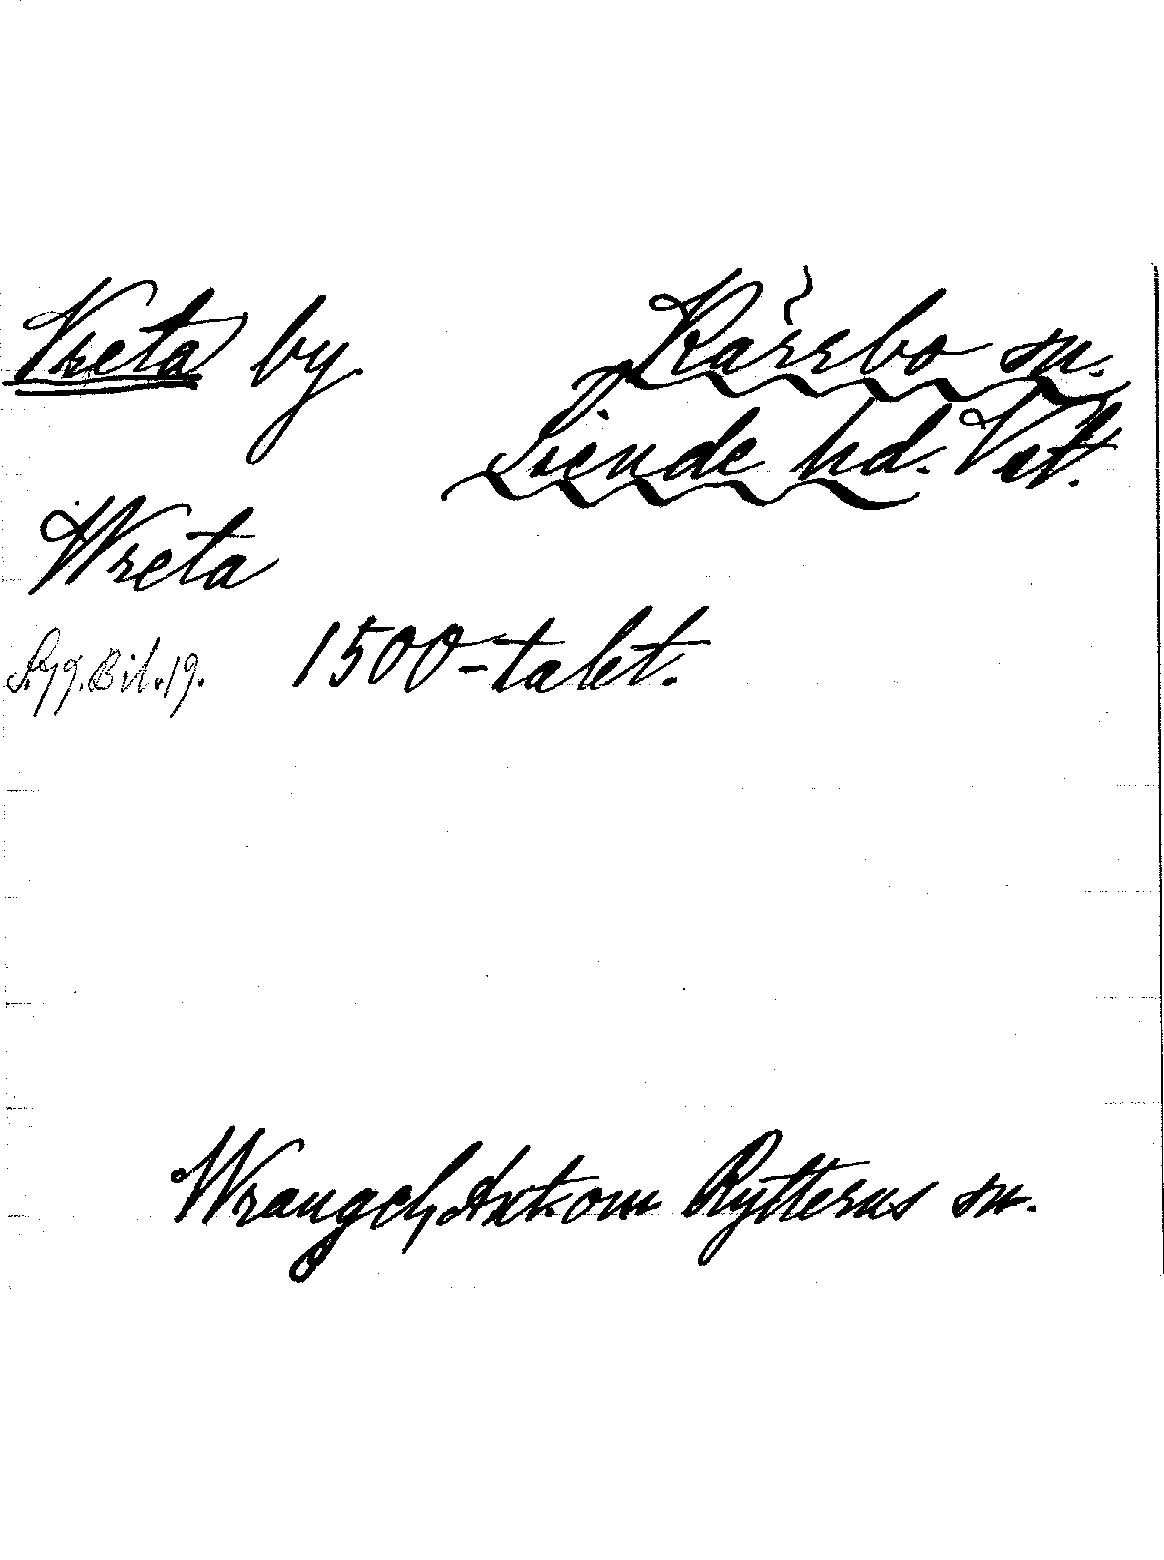 Vreta by Kärrbo sn.
Siende hd. Vstl.
Wreta
Lgg. Bil. 19. 1500-talet.
Wrangel, Ant. om Rytterns sn.